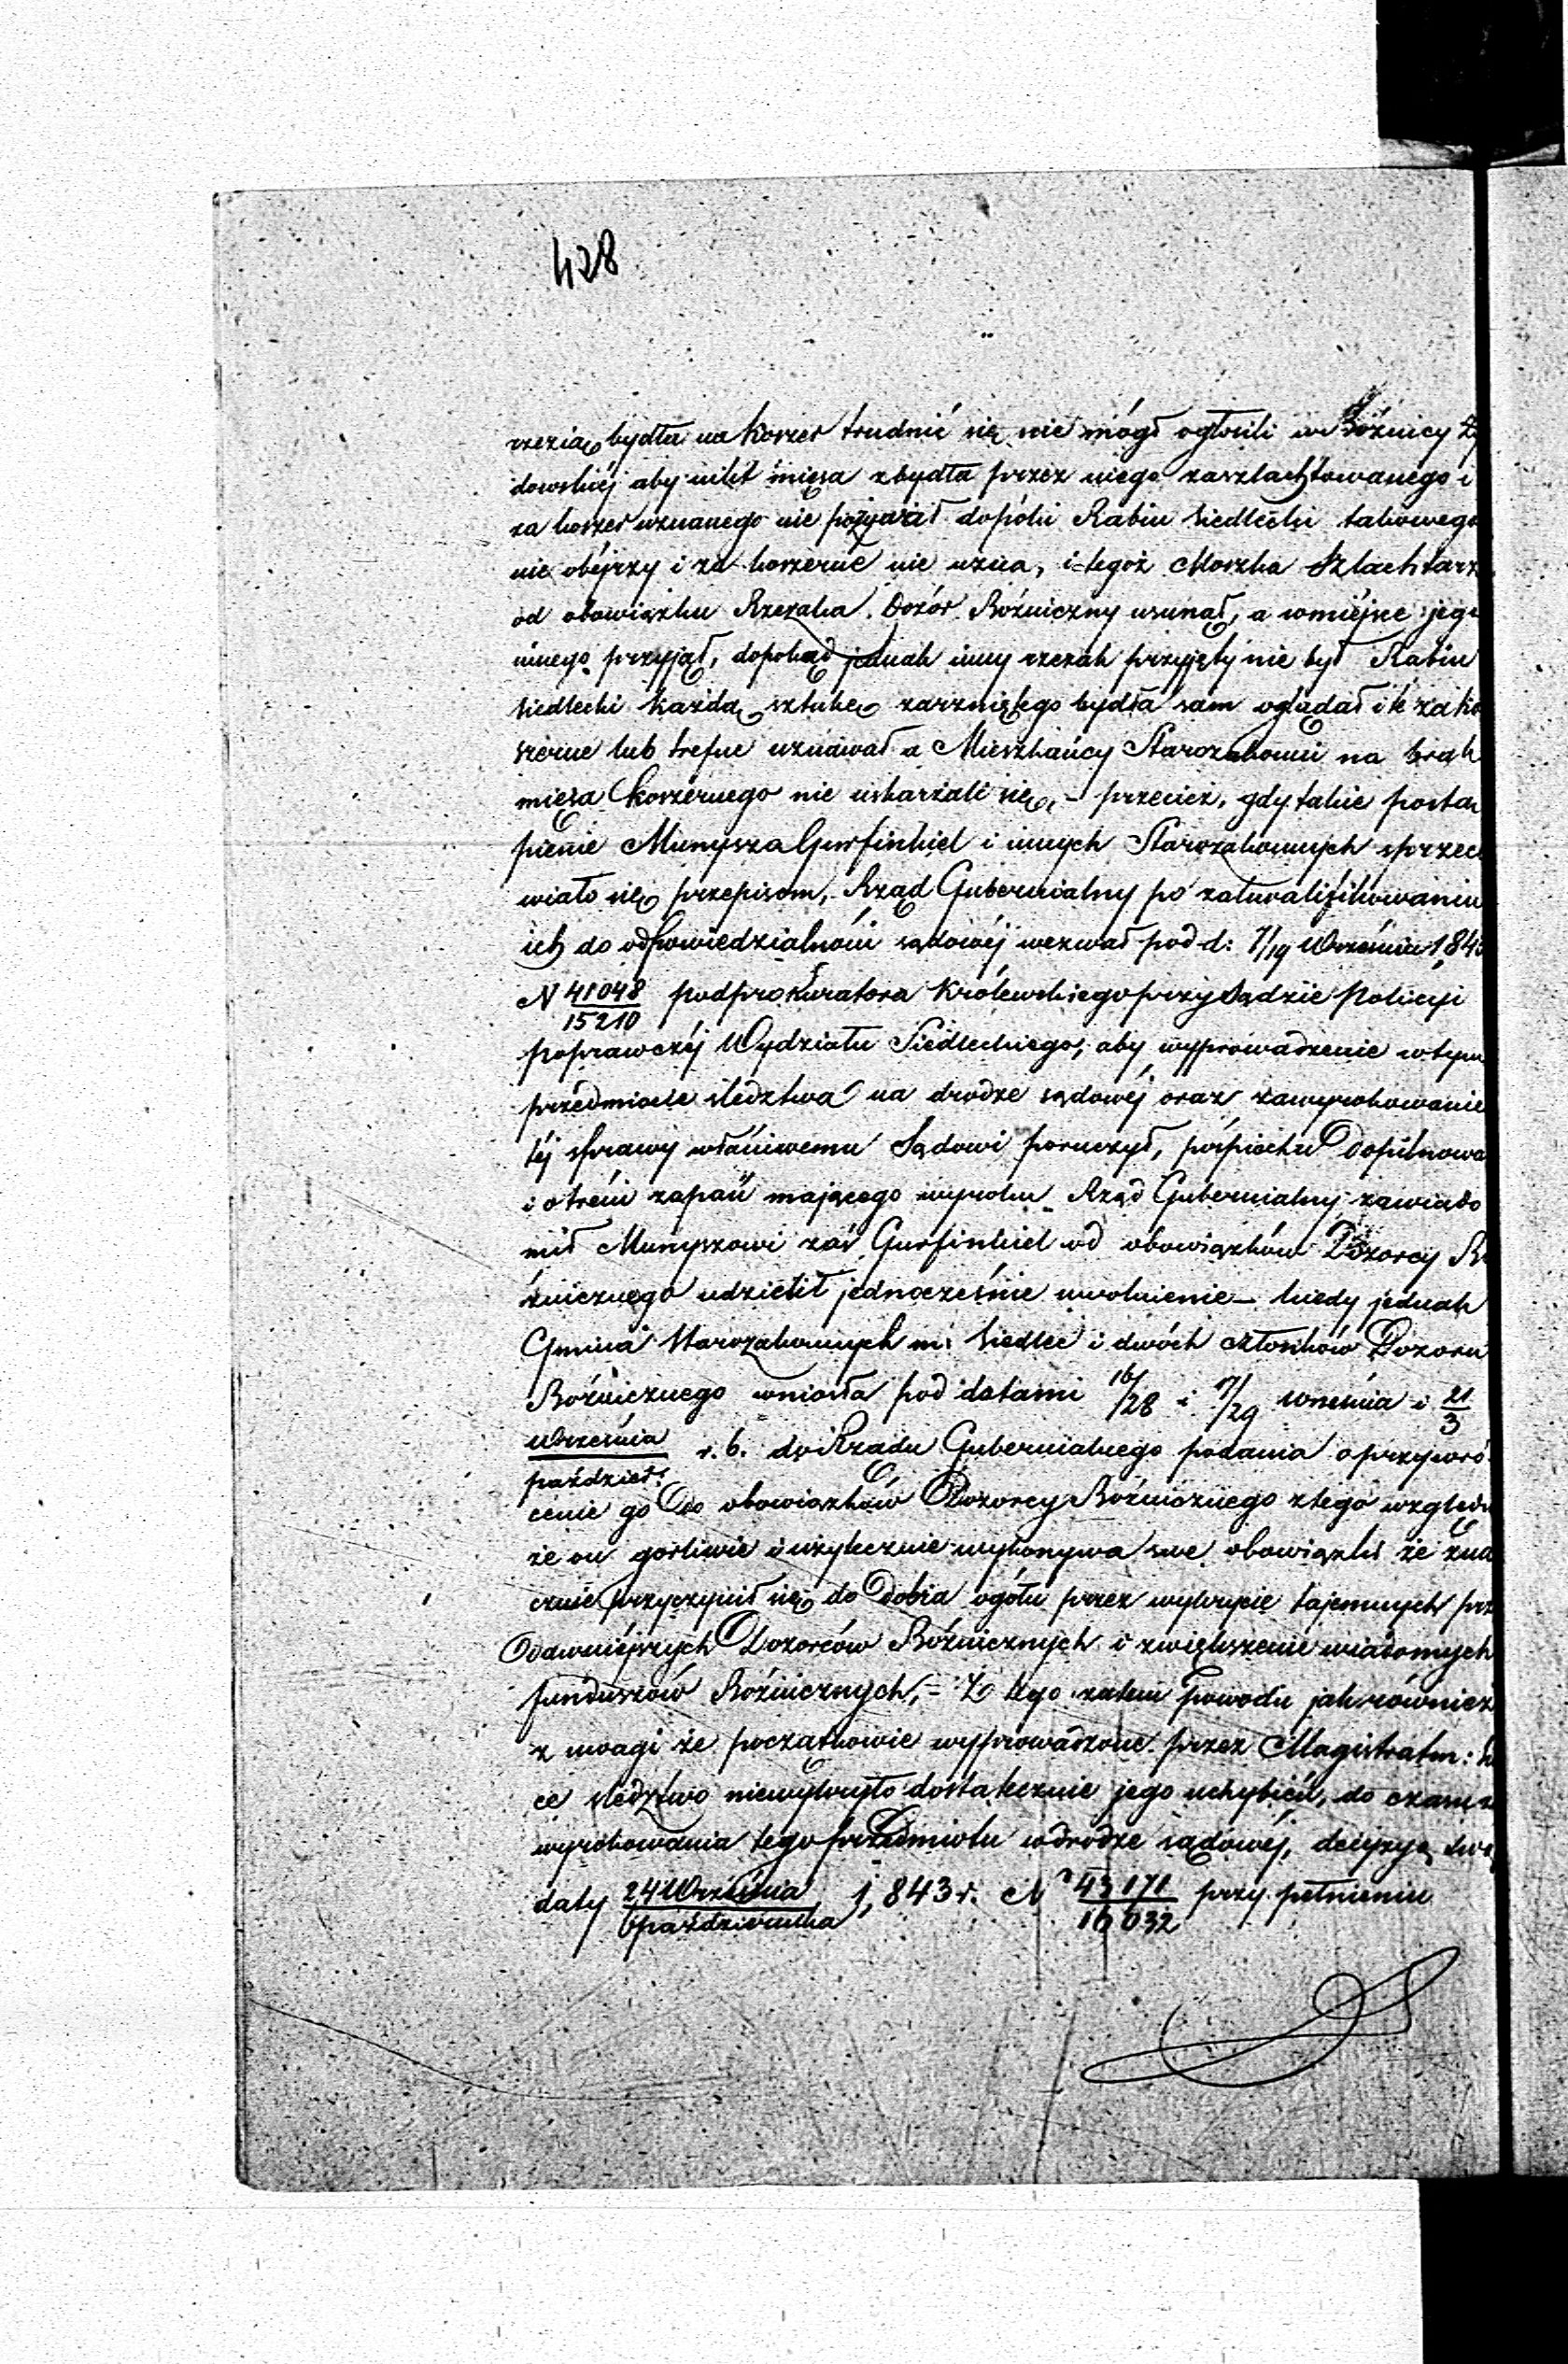 428
rzezią bydła na Koszer trudnić się nie mógł ogłosili w Bóżnicy Ży
dowskiéj aby nikt mięsa z bydła przez niego zaszlachtowanego i
za koszer uznanego nie pożywał dopóki Rabin Siedlecki takowego
nie obéjrzy i za koszerne nie uzna, i tegoż Moszka Szlachtarz
od obowiązku Rzezaka Dozór Bóżniczny usunął, a w miéjsce jego
innego przyjął, dopokąd jednak inny rzezak przyjęty nie był Rabin
Siedlecki każdą sztukę zarzniętego bydła sam oglądał i te za ko
szerne lub trefne uznawał a Mieszkańcy Starozakonni na brak
mięsa Koszernego nie uskarżali się, – przecież, gdy takie postą
pienie Munysza Gurfinkiel i innych Starozakonnych sprzeci
wiało się przepisom, Rząd Gubernialny po zakwalifikowaniu
ich do odpowiedzialności sądowéj wezwał pod d: 7/19 Września 1843
N 41048/15210 podprokuratora Królewskiego przy Sądzie Policyi
Poprawczéj Wydziału Siedleckiego, aby wyprowadzenie w tym
przedmiocie śledztwa na drodze sądowéj oraz zawyrokowanie
téj sprawy właściwemu Sądowi poruczył, pośpiechu dopilnowa
i o treści zapaść mającego wyroku Rząd Gubernialny zawiado
mił Munyszowi zaś Gurfinkiel od obowiązków Dozorcy Bó
żnicznego udzielił jednocześnie uwolnienie – kiedy jednak
Gmina Starozakonnych m: Siedlec i dwóch członków Dozoru
Bóżnicznego wniosła pod datami 16/28 i 17/29 Września i 21/3
Września/paździer: r. b. do Rządu Gubernialnego podania o przywró
cenie go do obowiązków Dozorcy Bóżnicznego z tego względu
że on gorliwie i użytecznie wykonywa swe obowiązki że zna
cznie przyczynił się do dobra ogółu przez wykrycie tajemnych prz
dawniéjszych Dozorców Bóżnicznych i zwiększenie wiadomych
funduszów Bóżnicznych, – Z tego zatem powodu jak również
z uwagi że początkowie wyprowadzone przez Magistrat m:
ce śledztwo niewykryło dostatecznie jego uchybień, do czasu
wyrokowania tego przedmiotu w drodze sądowéj, decyzyą swą
daty 24 Września/6 października 1,843 r. N 43171/16032 przy pełnieniu